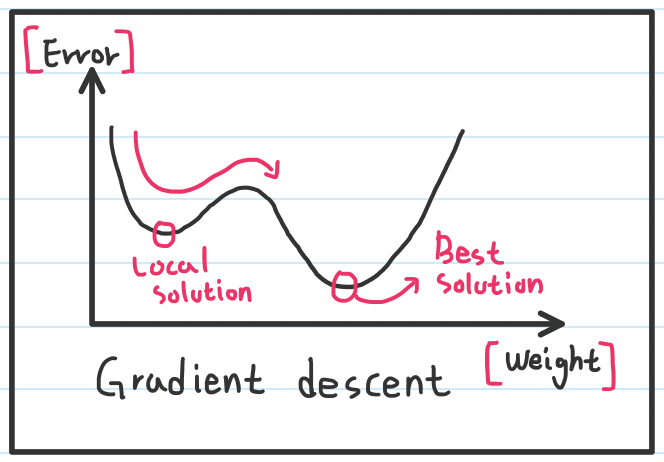 [Error]
Local
Solution
Best
Solution
[Weight]
Gradient descent